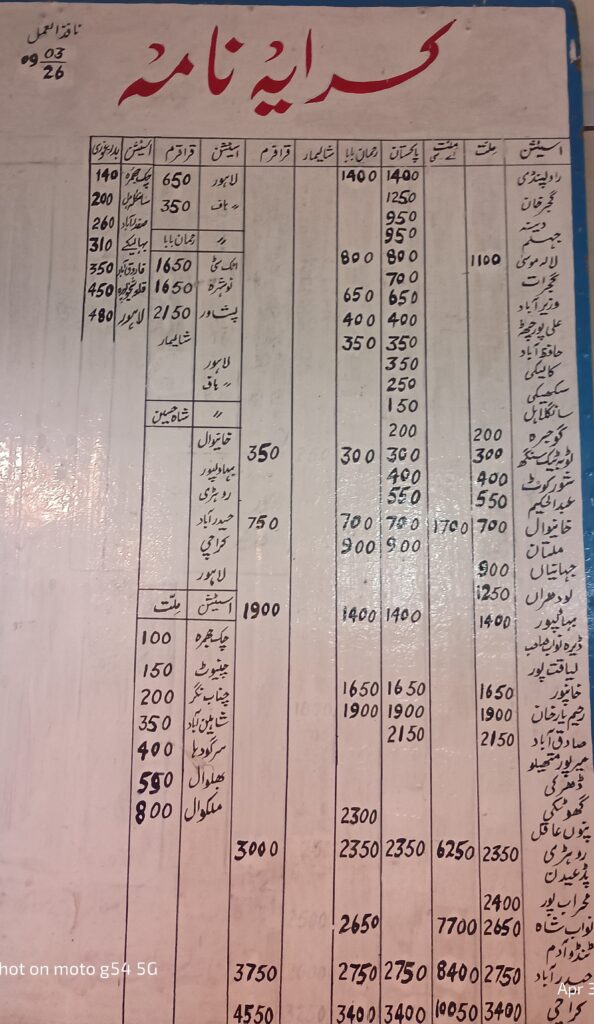 نافذ العمل
09 03/26
کرایہ نامہ
اسٹیشن ملت ملت اے سی پاکستان رحمان بابا شالیمار قراقرم
راولپنڈی 1400 1400
گجر خان 1250
دینہ 950
جہلم 950
لالہ موسیٰ 1100 800 800
گجرات 700
وزیر آباد 650 650
علی پور چٹھہ 400 400
حافظ آباد 350 350
کالیکی 350
سکھیکی 250
سانگلہ ہل 150
گوجرہ 200 200
ٹوبہ ٹیک سنگھ 300 300 300 350
شورکوٹ 400 400
عبدالحکیم 550 550
خانیوال 700 1700 700 700 750
ملتان 900 900
جہانیاں 900
لودھراں 1250
بہاولپور 1400 1400 1400 1900
ڈیرہ نواب صاحب
لیاقت پور
خانپور 1650 1650 1650
رحیم یار خان 1900 1900 1900
صادق آباد 2150 2150
میرپور متھیلو
ڈھرکی
گھوٹکی 2300
پنوں عاقل
روہڑی 2350 6250 2350 2350 3000
پڈعیدن
محراب پور 2400
نواب شاہ 2650 7700 2650
ٹنڈو آدم
حیدر آباد 2750 8400 2750 2750 3750
کراچی 3400 10050 3400 3400 4550
اسٹیشن قراقرم
لاہور 650
〃 ہاف 350
〃 رحمان بابا
اٹک سٹی 1650
نوشہرہ 1650
پشاور 2150
شالیمار
لاہور
〃 ہاف
〃 شاہ حسین
خانیوال
بہاولپور
روہڑی
حیدرآباد
کراچی
لاہور
اسٹیشن ملت
چک جھمرہ 100
چنیوٹ 150
چناب نگر 200
شاہین آباد 350
سرگودہا 400
بھلوال 550
ملکوال 800
اسٹیشن
چک جھمرہ 140
سانگلہ ہل 200
صفدر آباد 260
بہالیکے 310
فاروق آباد 350
قلعہ شیخوپورہ 450
لاہور 480
hot on moto g54 5G
Apr 3